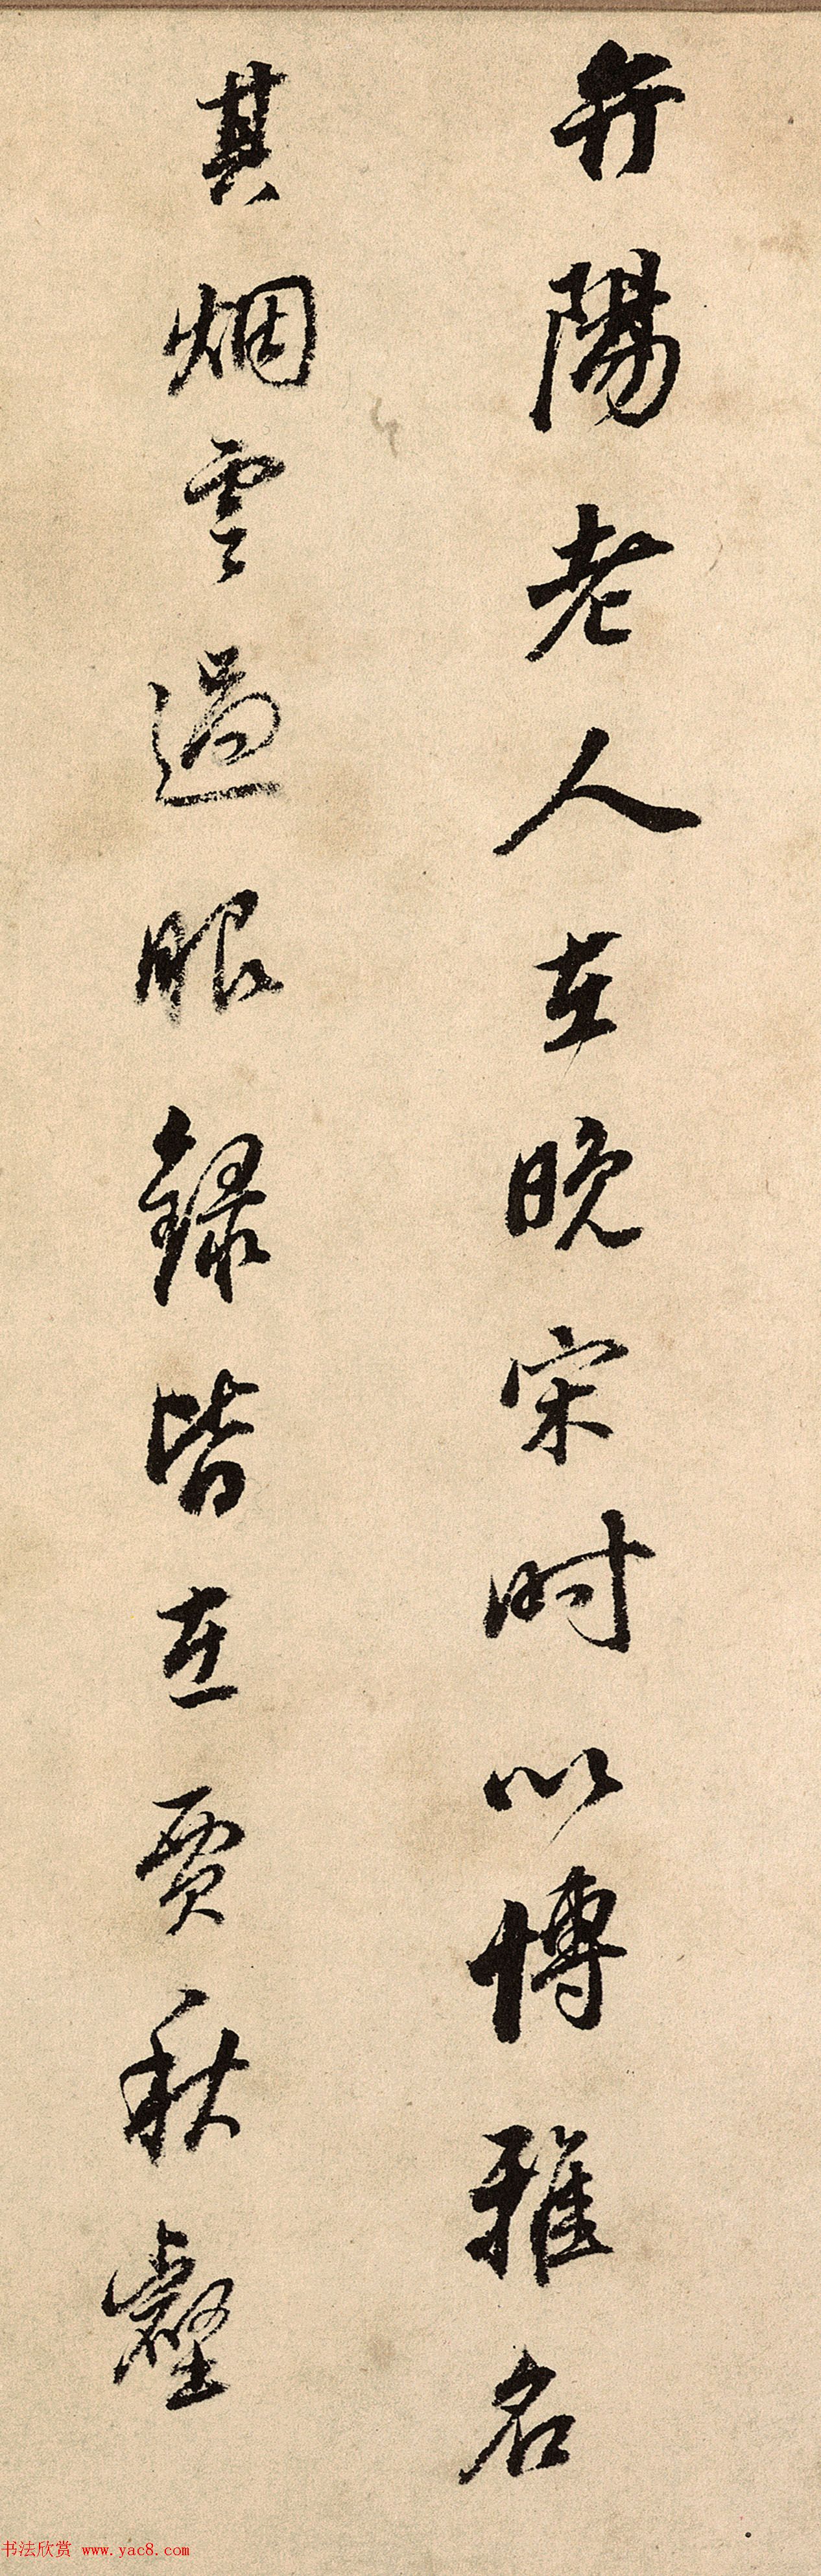 弁陽老人在晚宋时以博雅名
其烟雲過眼録皆在賈秋壑
书法欣赏 www.yac8.com